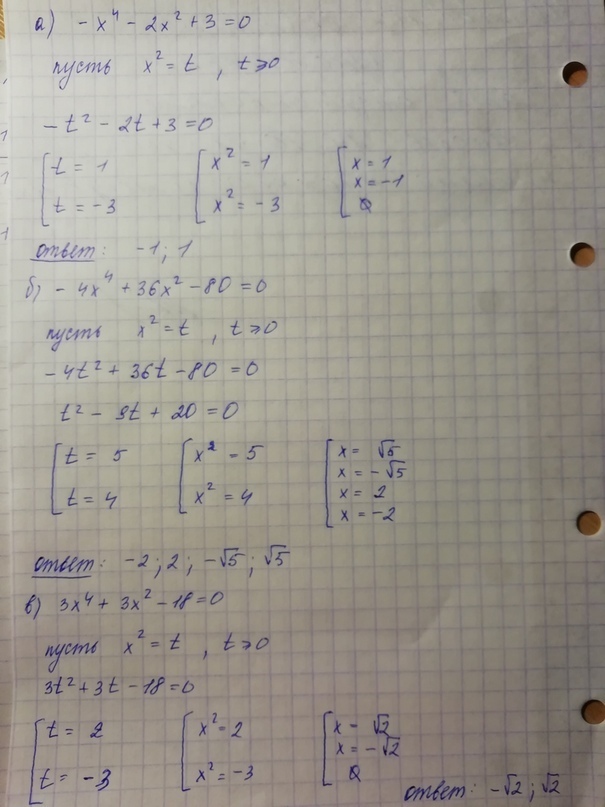 а) -x⁴ - 2x² + 3 = 0
пусть x² = t , t ≥ 0
-t² - 2t + 3 = 0
[ t = 1 [ x² = 1 [ x = 1
x = -1
t = -3 x² = -3 ∅
ответ: -1; 1
б) -4x⁴ + 36x² - 80 = 0
пусть x² = t , t ≥ 0
-4t² + 36t - 80 = 0
t² - 9t + 20 = 0
[ t = 5 [ x² = 5 [ x = √5
x = -√5
t = 4 x² = 4 x = 2
x = -2
ответ: -2; 2; -√5; √5
в) 3x⁴ + 3x² - 18 = 0
пусть x² = t , t ≥ 0
3t² + 3t - 18 = 0
[ t = 2 [ x² = 2 [ x = √2
x = -√2
t = -3 x² = -3 ∅
ответ: -√2; √2